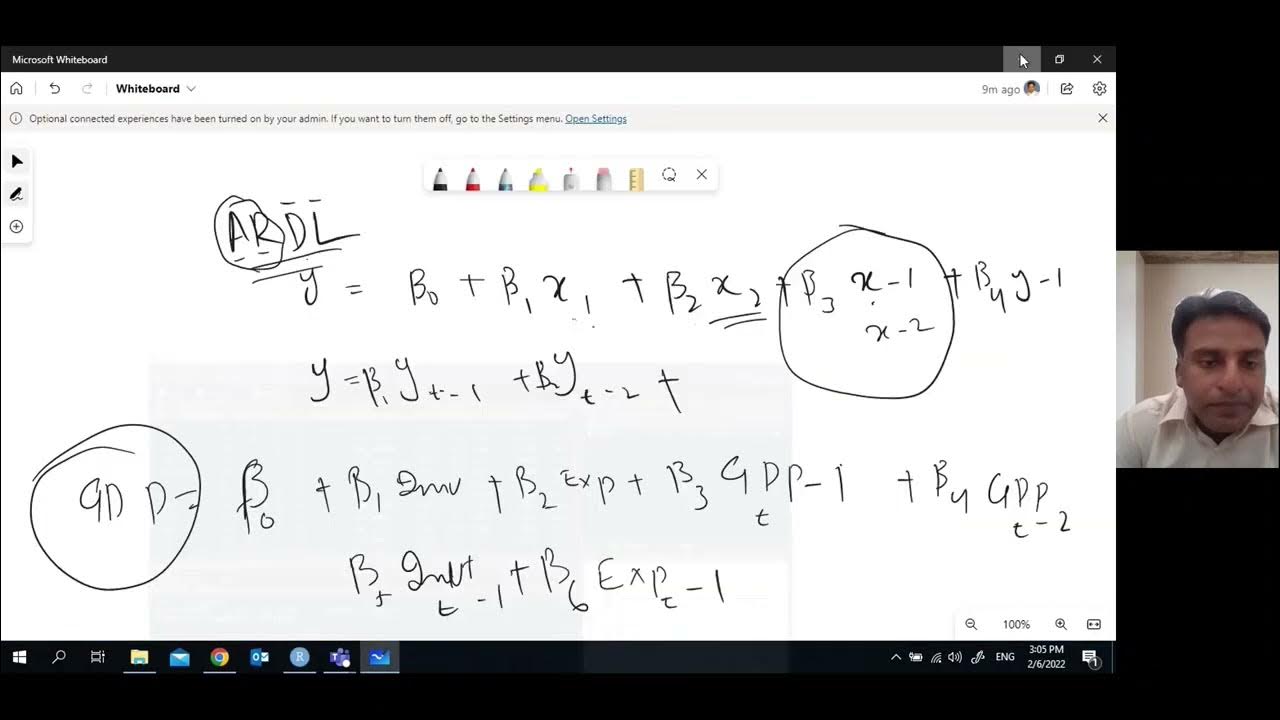 Microsoft Whiteboard
Whiteboard
9m ago
Optional connected experiences have been turned on by your admin. If you want to turn them off, go to the Settings menu. Open Settings
ARDL
y = β0 + β1 x1 + β2 x2 + β3 x-1 + β4 y-1
x-2
y = β1 yt-1 + β2 yt-2 +
GDP = β0 + β1 Inv + β2 Exp + β3 GDPt-1 + β4 GDPt-2
β5 Invt-1 + β6 Expt-1
100%
ENG
3:05 PM
2/6/2022
1